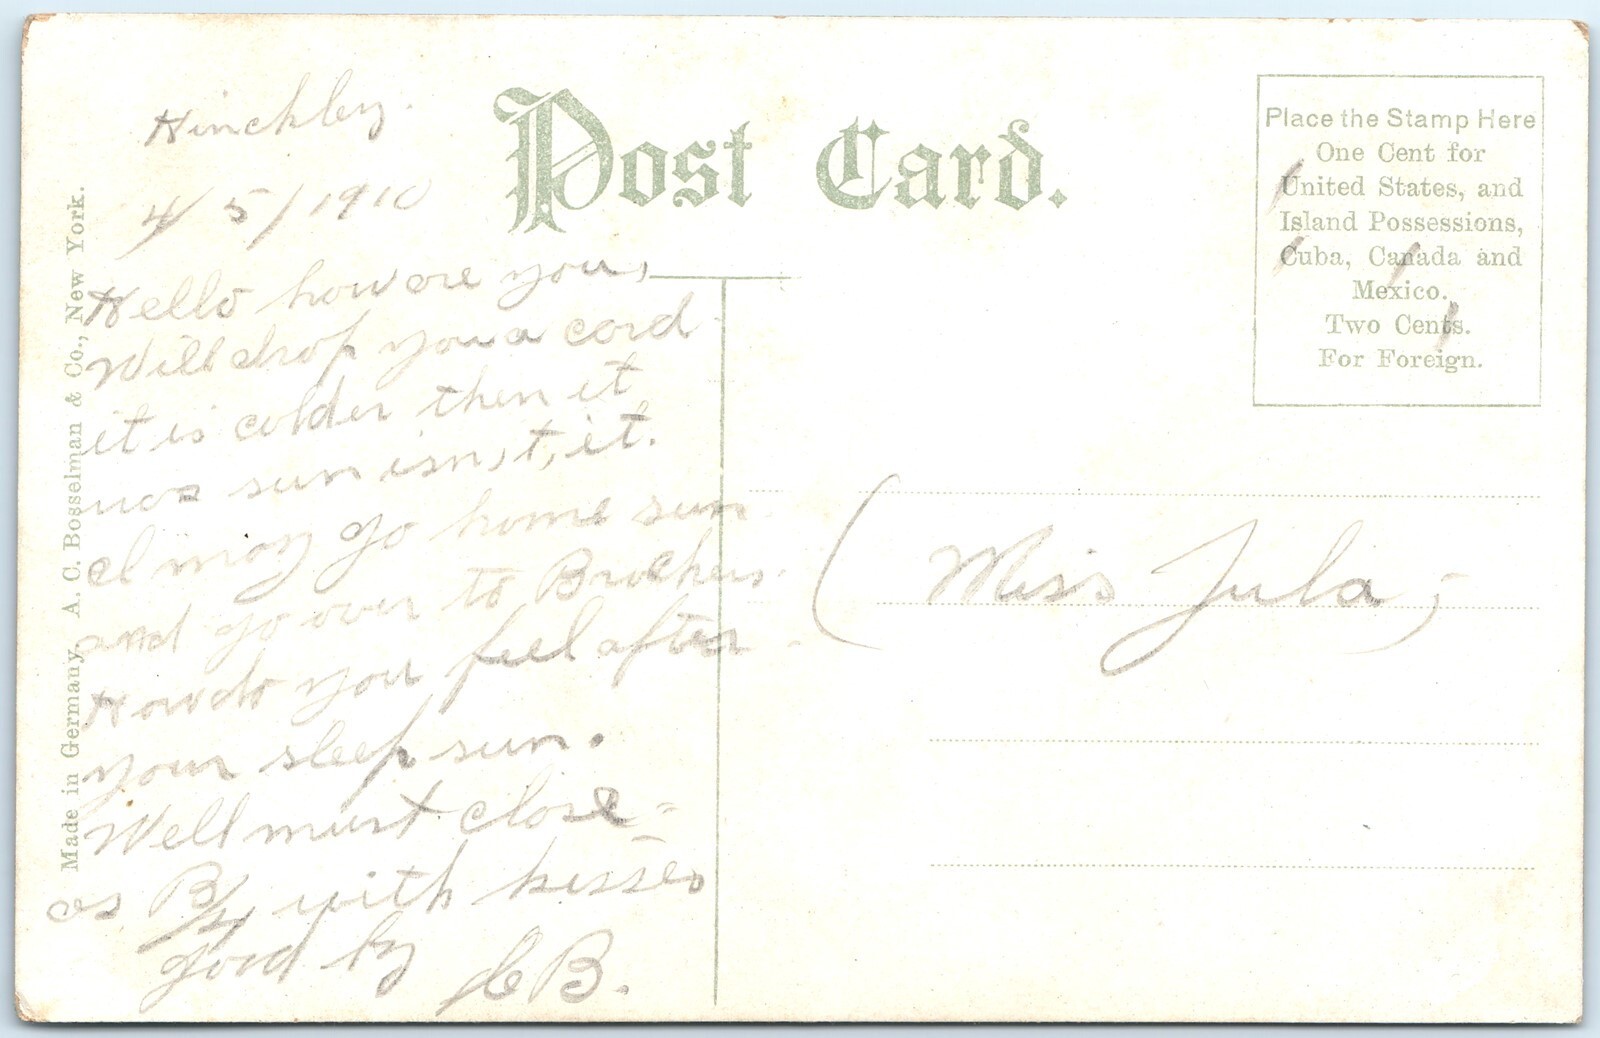 Post Card.
Place the Stamp Here
One Cent for
United States, and
Island Possessions,
Cuba, Canada and
Mexico.
Two Cents.
For Foreign.
Made in Germany. A. C. Bosselman & Co., New York.
Hinckley.
4/5/1910
Hello how are you,
Will drop you a card
it is colder then it
was sun isn,t, it.
I may go home sun
and go over to
How do you feel after
your sleep sun.
Well must close
as with kisses
good by B.
(Miss Jula,